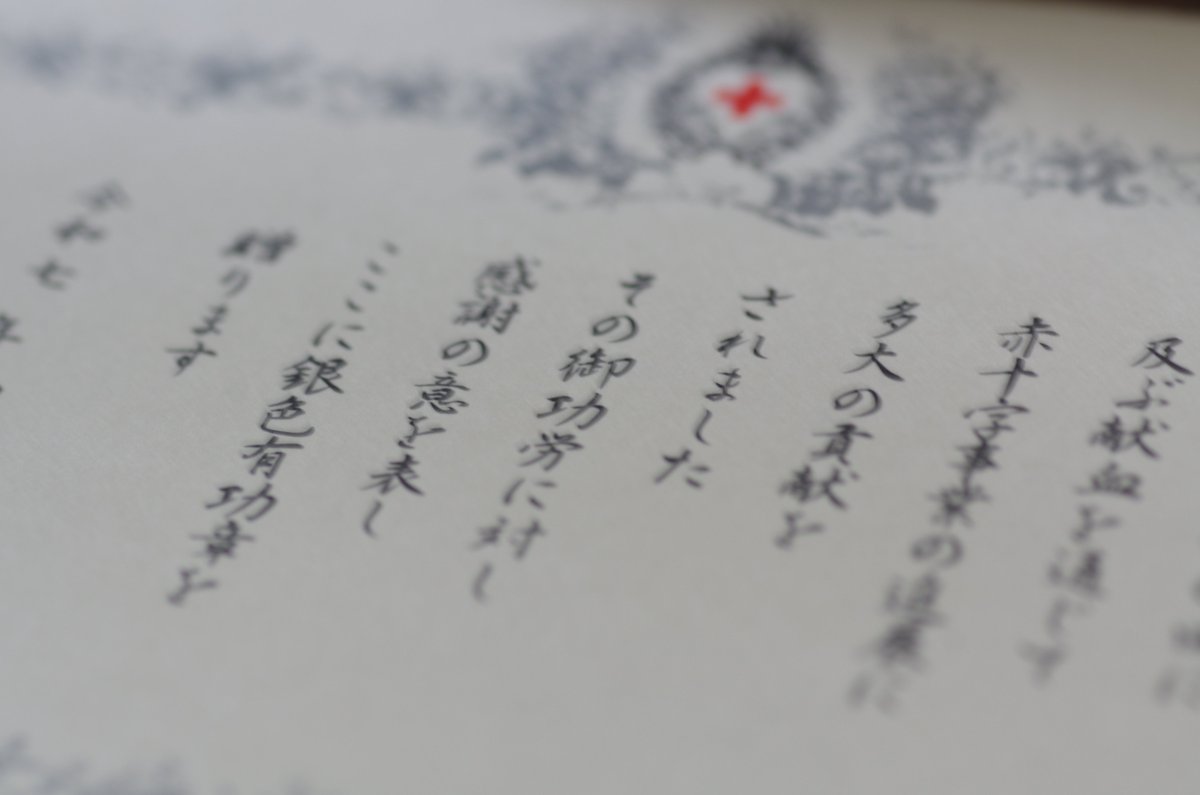 及ぶ献血を通じて
赤十字事業の進展に
多大の貢献を
されました
その御功労に対し
感謝の意を表し
ここに銀色有功章を
贈ります
令和七